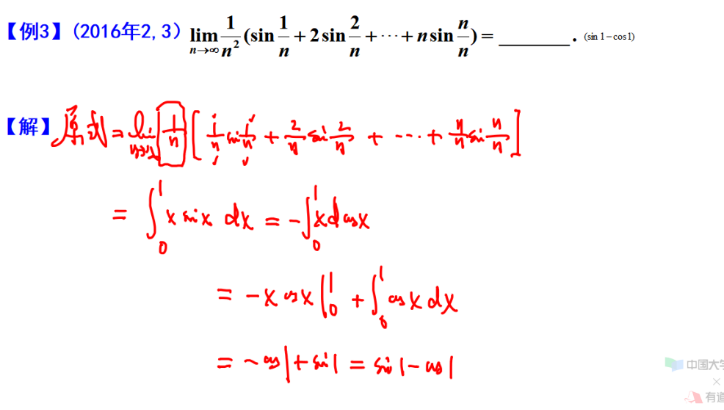 【例3】(2016年2,3) lim_{n→∞} 1/n² (sin 1/n + 2 sin 2/n + ⋯ + n sin n/n) = ________. (sin1−cos1)
【解】原式 = lim_{n→∞} 1/n [1/n sin 1/n + 2/n sin 2/n + ⋯ + n/n sin n/n]
= ∫₀¹ x sin x dx = −∫₀¹ x d cos x
= −x cos x |₀¹ + ∫₀¹ cos x dx
= −cos1 + sin1 = sin1 − cos1
中国大学
有道